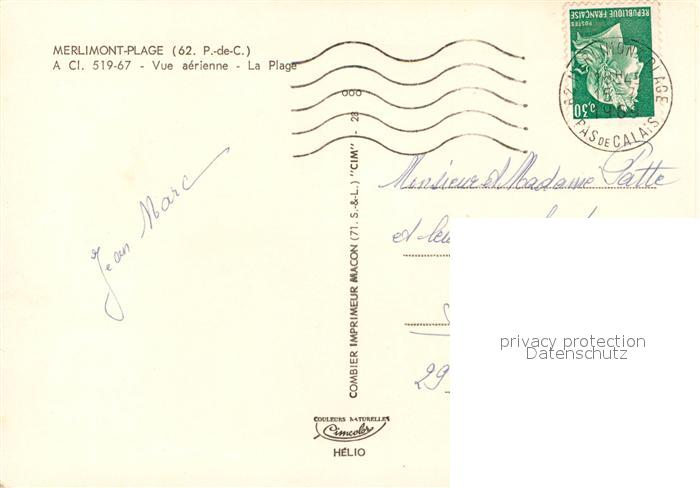 MERLIMONT-PLAGE (62. P.-de-C.)
A Cl. 519-67 - Vue aérienne - La Plage
Jean Marc
COMBIER IMPRIMEUR MACON (71. S.-&-L.) "CIM" - 28 000
COULEURS NATURELLES
Cimcolor
HÉLIO
POSTES
REPUBLIQUE FRANÇAISE
0,30
PLAGE
PAS DE CALAIS
Monsieur et Madame Patte
et
29
privacy protection
Datenschutz